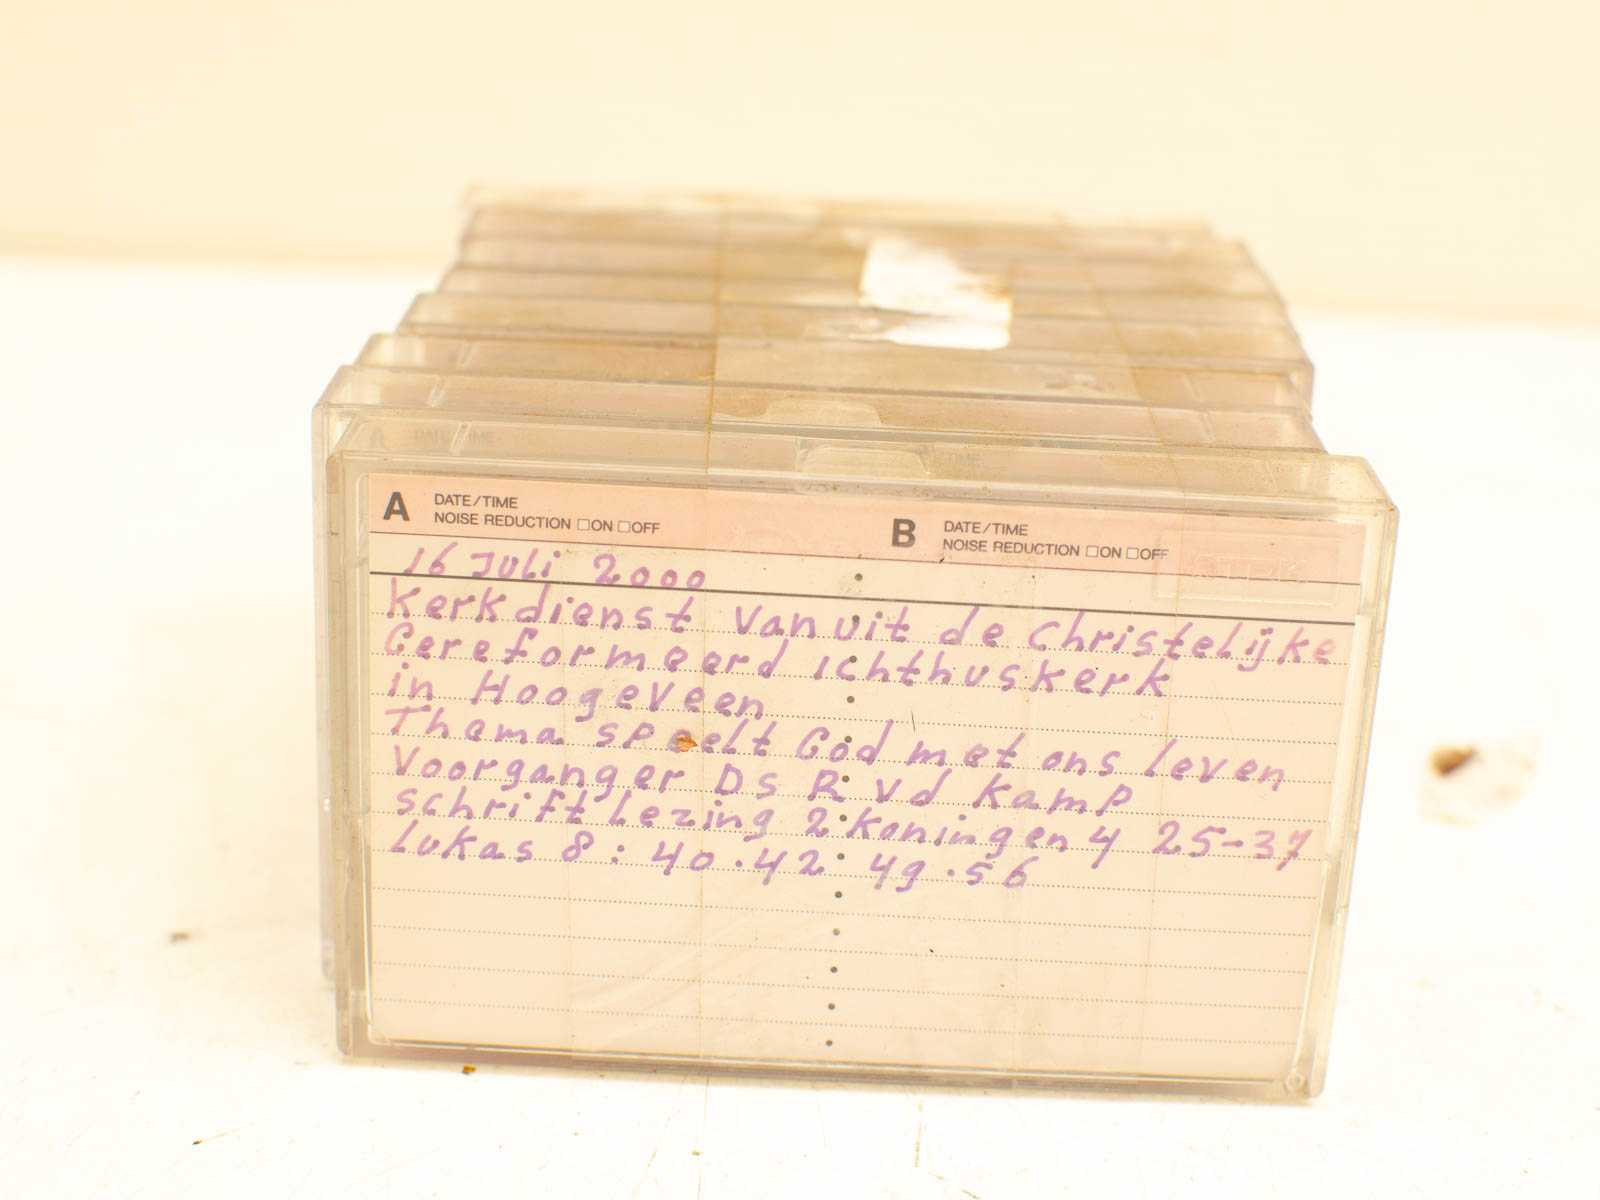 A DATE/TIME
NOISE REDUCTION □ON □OFF
B DATE/TIME
NOISE REDUCTION □ON □OFF
TDK
16 Juli 2000
Kerkdienst vanuit de Christelijke
Gereformeerd Ichthuskerk
in Hoogeveen
Thema speelt God met ons leven
Voorganger Ds R vd Kamp
schrift lezing 2 koningen 4 25-37
Lukas 8: 40.42 49.56